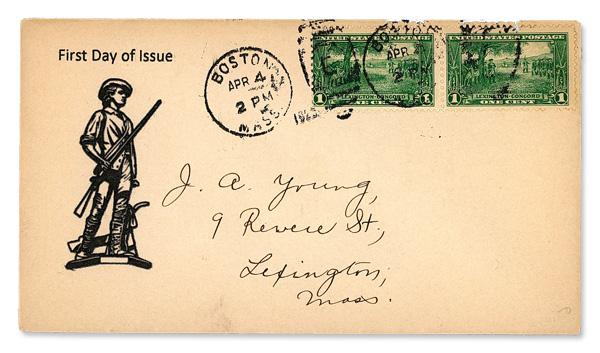 First Day of Issue
BOSTON
APR 4
2 PM
MASS.
1925
UNITED STATES POSTAGE
1 LEXINGTON-CONCORD 1
ONE CENT
BOSTON
APR 4
2 PM
UNITED STATES POSTAGE
1 LEXINGTON-CONCORD 1
ONE CENT
J. A. Young,
9 Revere St.,
Lexington,
Mass.